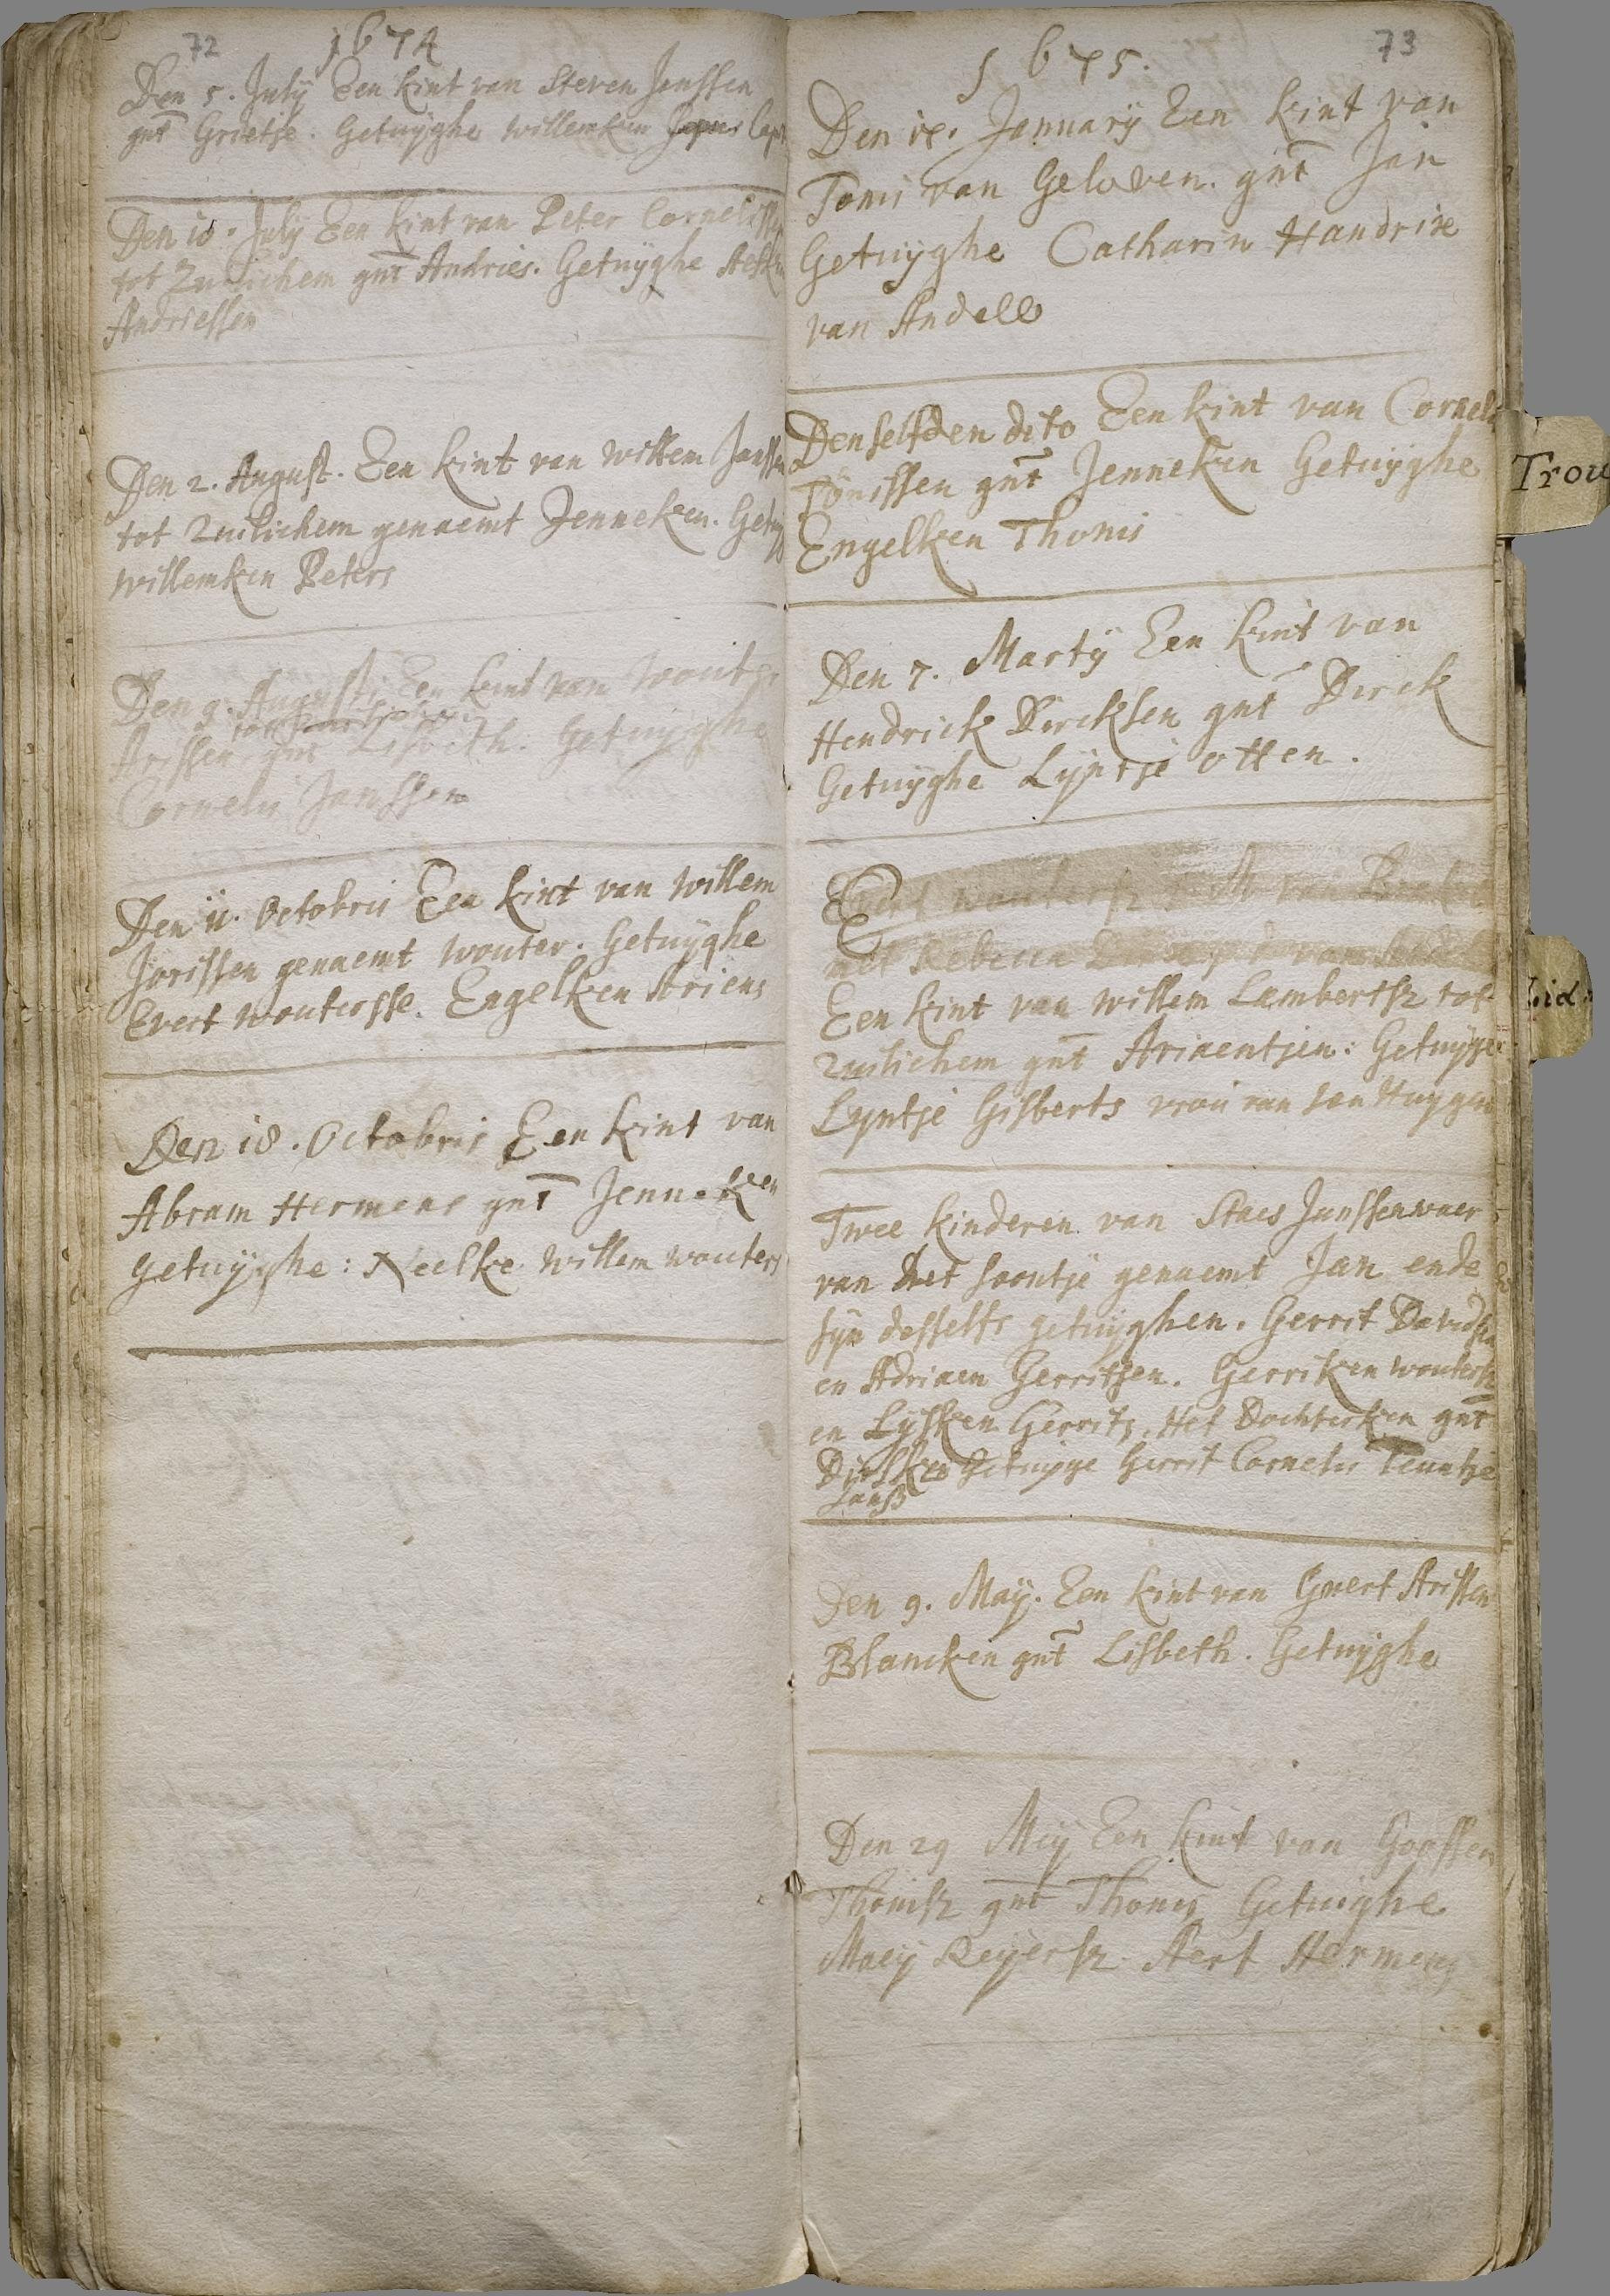 72
1674
Den 5. July Een kint van Steven Jenssen
gnt Grietje. Getuijghe Willemken
Den 10. July Een kint van Peter Cornelissen
tot Zuilichem gnt Andries. Getuijghe
Andriessen
Den 2. August. Een kint van Willem Janssen
tot Zuilichem genaemt Jenneken. Getuijgh
Willemken Peters
Den 9. Augusti Een kint van Wouter
Arissen gnt Lisbeth. Getuijghe
Cornelis Janssen
Den 11. Octobris Een kint van Willem
Jorissen genaemt Wouter. Getuijghe
Evert Woutersse. Engelken Ariens
Den 18. Octobris Een kint van
Abram Hermens gnt Jenneken
Getuijghe: Neelke Willem Wouters
73
1675.
Den Januarij Een kint van
Tonis van Geloven. gnt Jan
Getuijghe Catharin Handrix
van Andell
Denselfden dito Een kint van Cornelis
Tönissen gnt Jenneken Getuijghe
Engelken Thonis
Den 7. Martij Een kint van
Hendrick Dircksen gnt Dirck
Getuijghe Lijntje Otten.
Evert Woutersz van
met Rebecca van
Een kint van Willem Lambertsz tot
Zuilichem gnt Ariaentjen: Getuijge
Lyntje Gisberts vrou van Jan Huygen
Twee kinderen van Staes Janssen waer
van Het soontje genaemt Jan ende
sijn desselfs getuijghen. Gerrit Davidsen
en Adriaen Gerritsen. Gerriken Woutersz
en Lysken Gerrits, Het Dochterken gnt
Dirsken Getuijge Gerrit Cornelis Teuntje
Jansz
Den 9. Maij. Een kint van Govert Arissen
Blancken gnt Lisbeth. Getuijghe
Den 29 Meij Een kint van Goossen
Thonisz gnt Thonis Getuijghe
Maeij Reijersz Aert Hermens
Trou